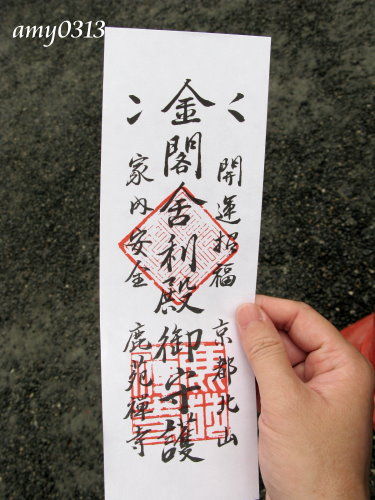 amy0313
開運招福 京都北山
金閣舎利殿御守護
家内安全 鹿苑禅寺